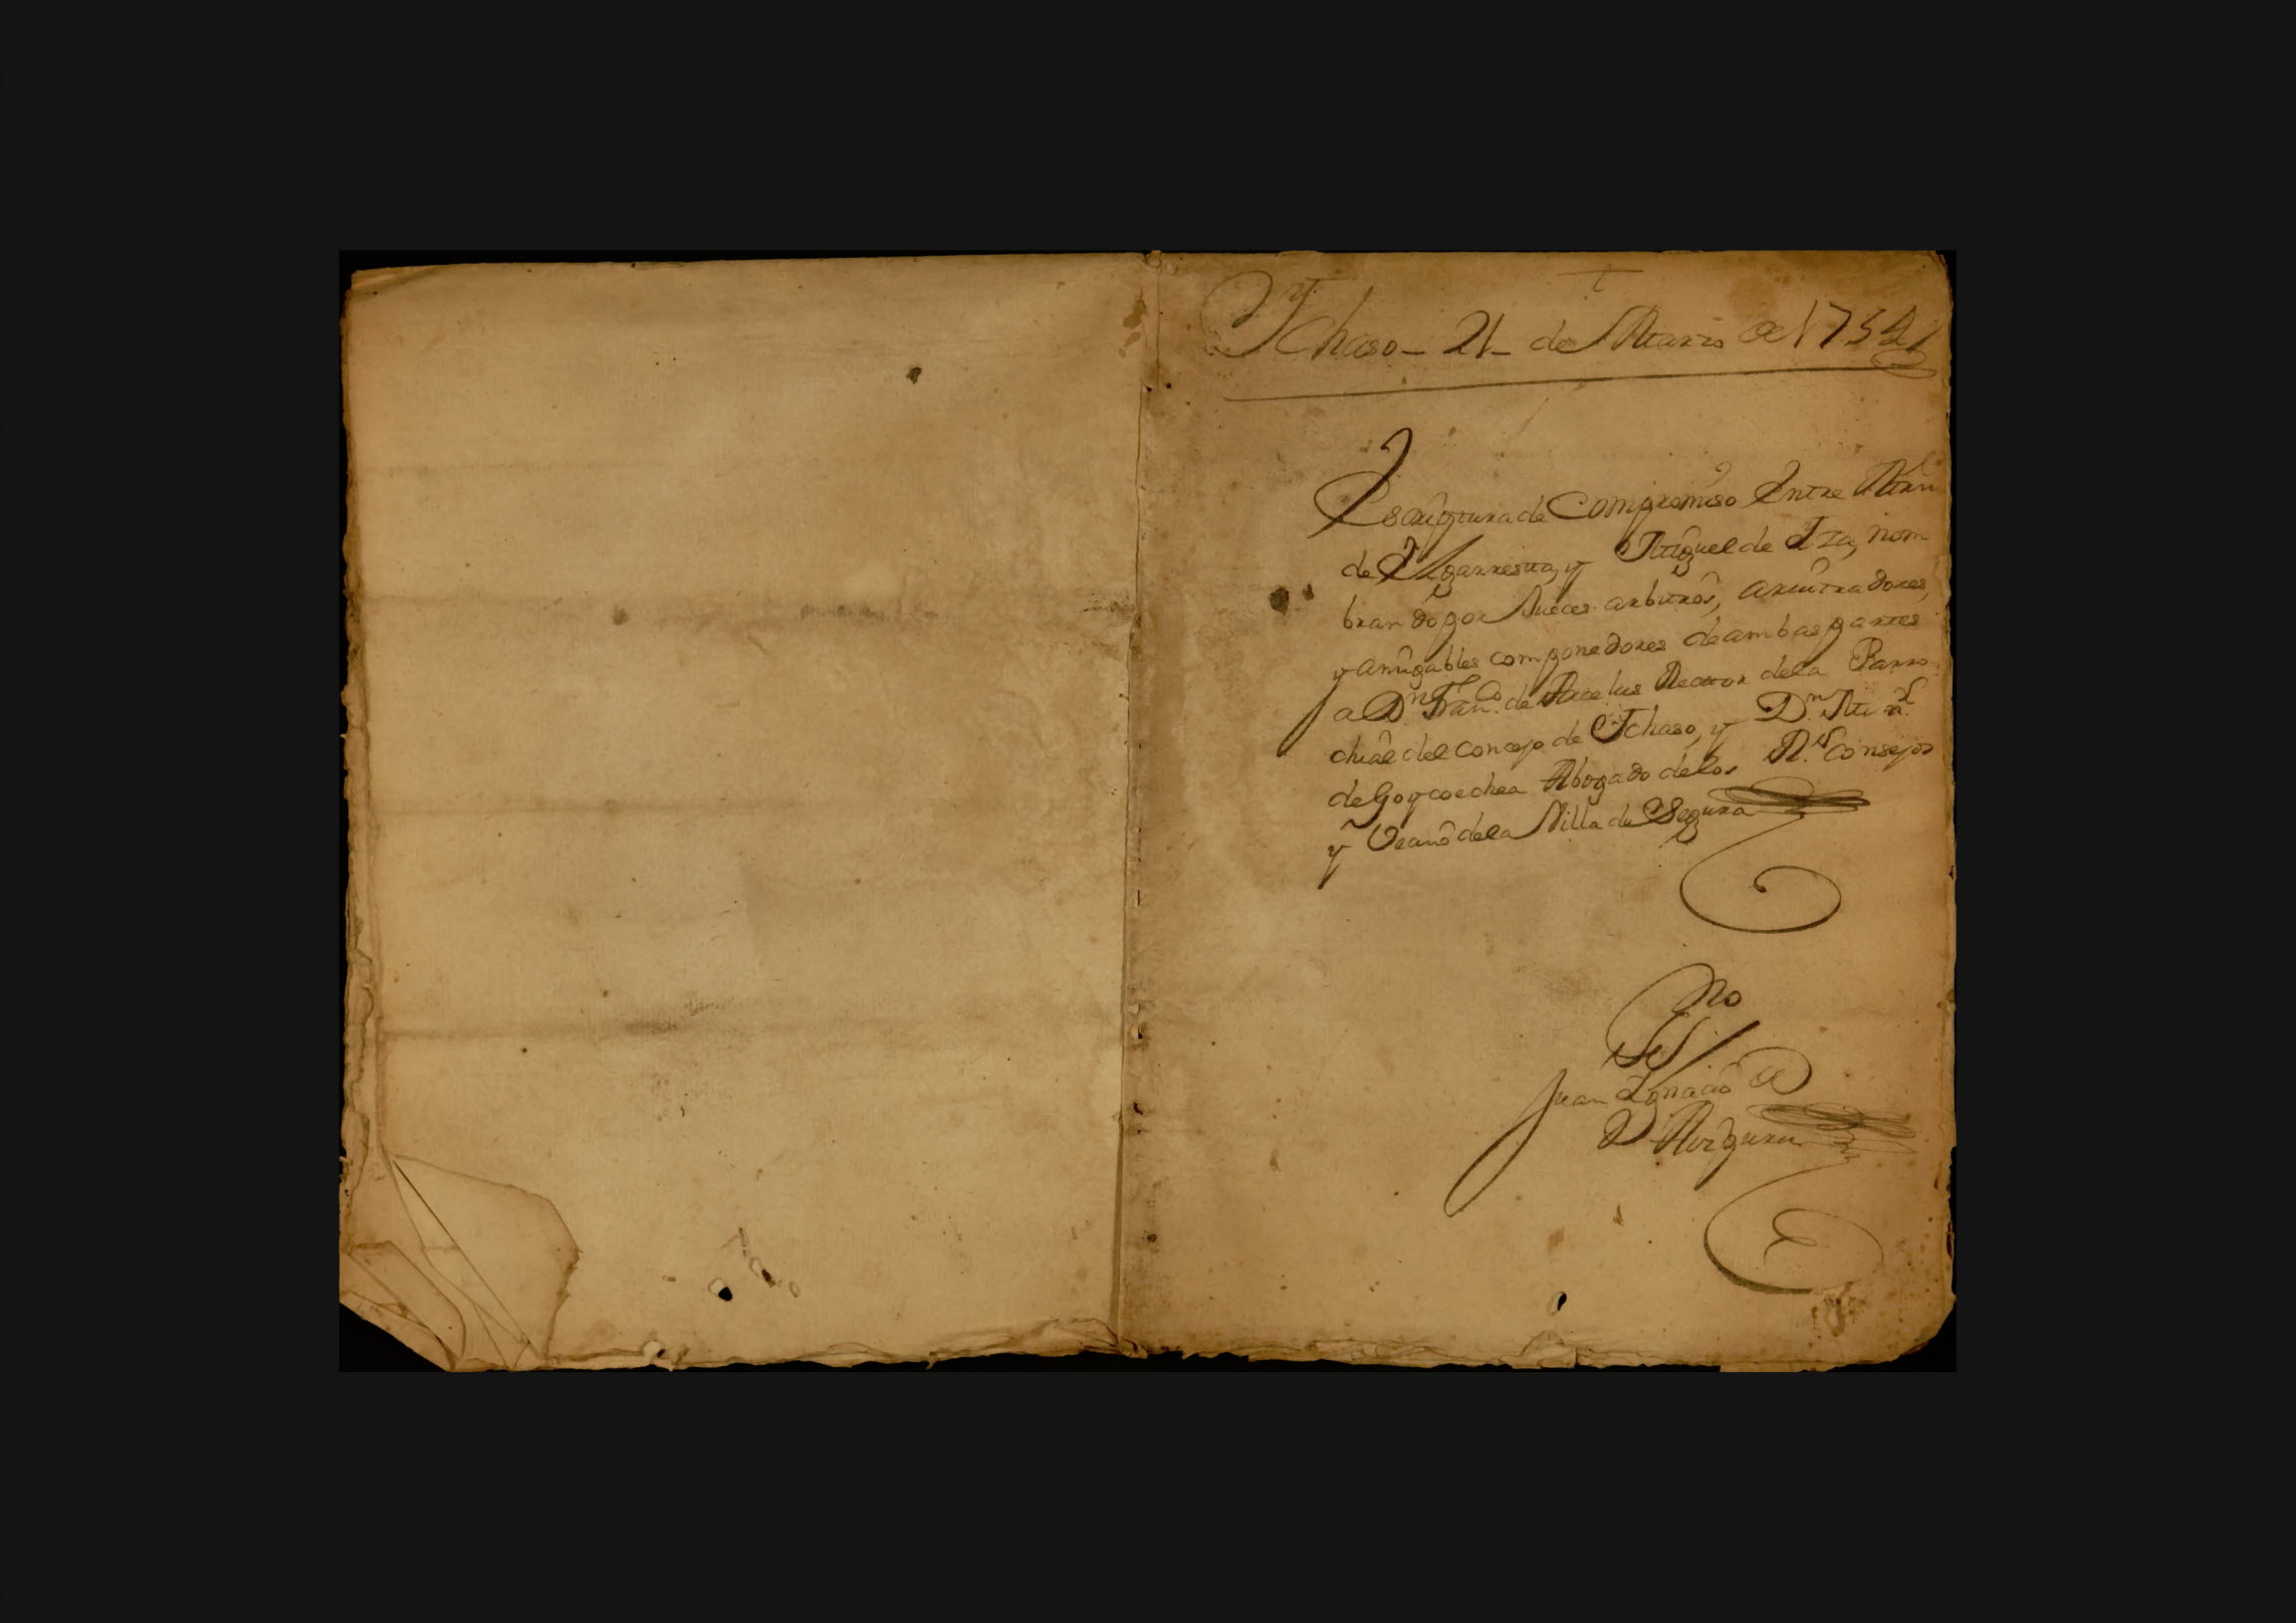 Ychaso - 21 - de Marzo de 1754
Escriptura de Compromiso Entre Mrn
de Ygarresta, y Miguel de Yza, nom
brando por Jueces arbitros, arvitradores,
y amigables componedores de ambas partes
a Dn. Franco. de Arcelus Rector dela Parro
chial del concejo de Ychaso, y Dn.
de Goycoechea Abogado delos Rs. Consejos
y Vecino dela Villa de Segura
Juan Ygnacio de